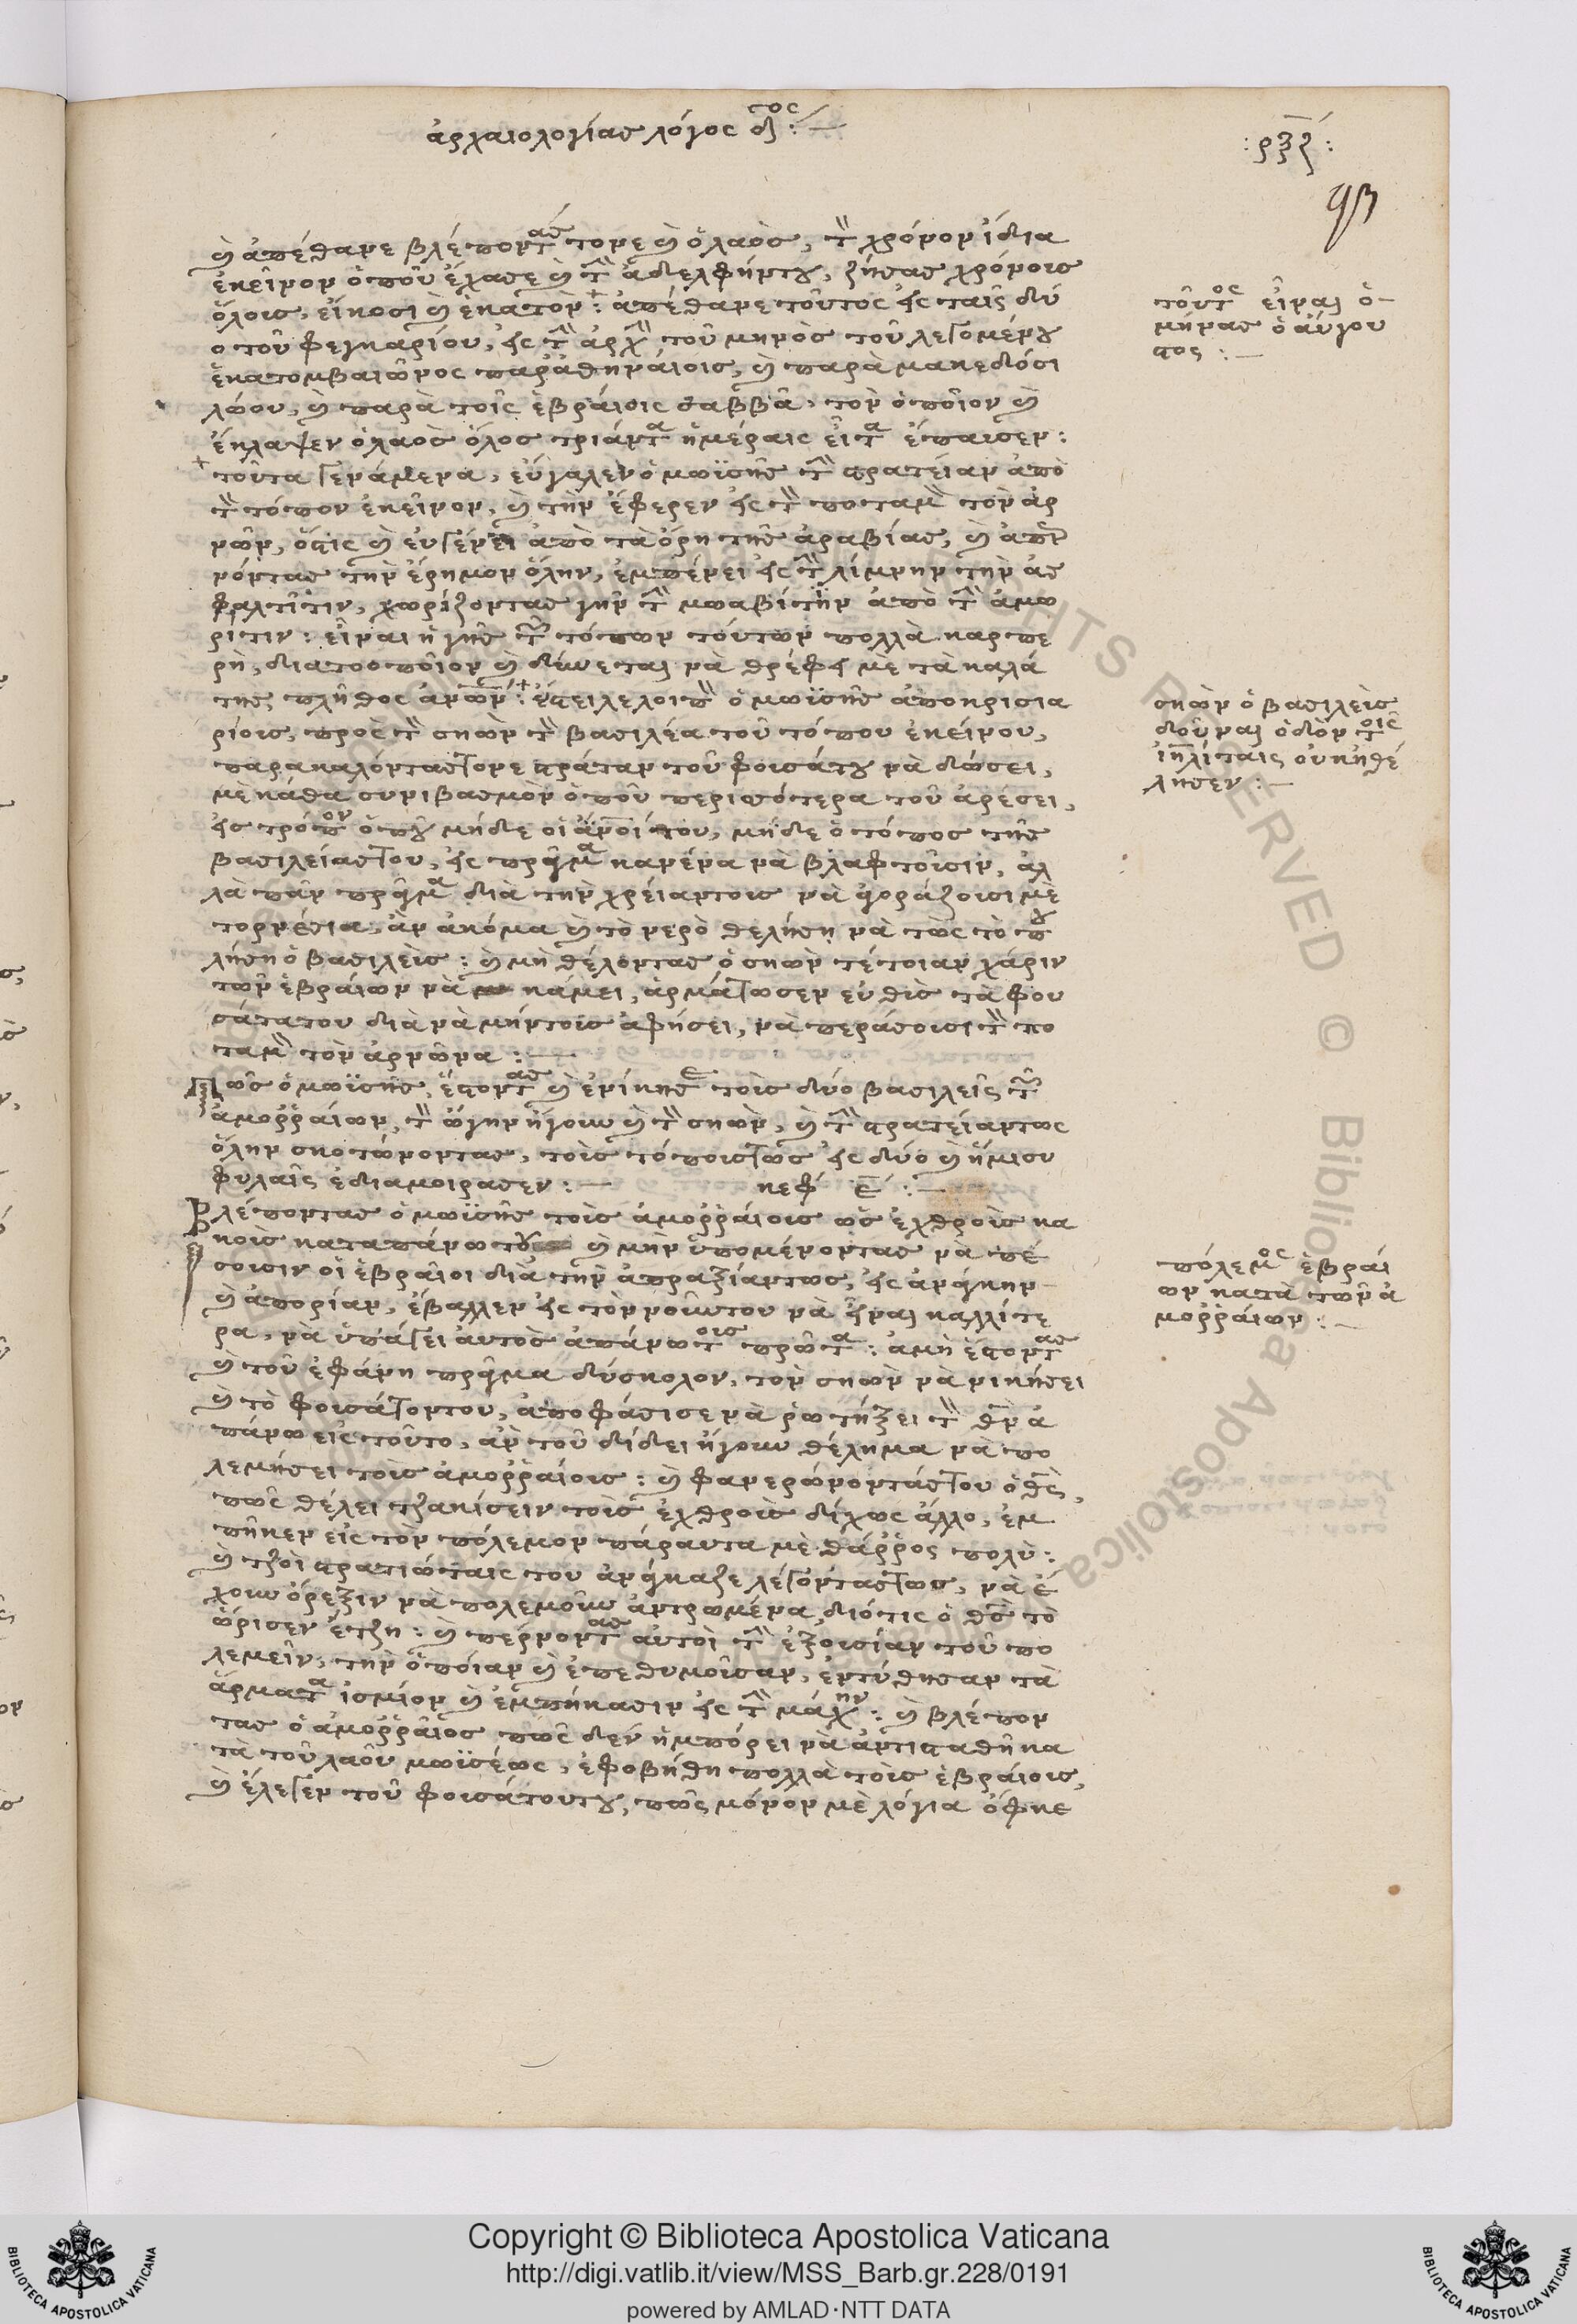 ἀρχαιολογίας λόγος δτος :—
: ρξζ :
93
καὶ ἀπέθανε βλέποντάς τονε καὶ ὁ λαὸς, τὸν χρόνον ἴδια
ἐκεῖνον ὁποῦ ἔχασε καὶ τὴν ἀδελφήντου, ζήσας χρόνοις
ὅλοις, εἴκοσι καὶ ἑκατόν : ἀπέθανε τοῦτος εἰς ταῖς δύ
ο τοῦ φεγκαρίου, εἰς τὴν ἀρχὴν τοῦ μηνὸς τοῦ λεγομένου
ἑκατομβαιῶνος παρἀθηναίοις, καὶ παρὰ μακεδόσι
λώου, καὶ παρὰ τοῖς ἑβραίοις σαββᾶ, τὸν ὁποῖον καὶ
ἔκλαψεν ὁ λαὸς ὅλος τριάντα ἡμέραις εἶτα ἔπαυσεν :
τοῦτος εἶναι ὁ
μήνας ὁ αὔγου
στος :—
τοῦτα γενάμενα, εὔγαλεν ὁ μωϊσῆς τὴν στρατείαν ἀπὸ
τὸν τόπον ἐκεῖνον, καὶ τὴν ἔφερεν εἰς τὸν ποταμὸν τὸν ἀρ
νῶν, ὅστις καὶ εὐγένει ἀπὸ τὰ ὄρη τῆς ἀραβίας, καὶ ἀπερ
νόντας τὴν ἔρημον ὅλην, ἐμπένει εἰς τὴν λίμνην τὴν ἀσ
φαλτῖτιν, χωρίζοντας γῆν τὴν μωαβίτην ἀπὸ τὴν ἀμω
ρίτιν : εἶναι ἡ γῆς τῶν τόπων τούτων πολλὰ καρπε
ρὴ, διατοοποῖον καὶ δύνεται νὰ θρέφη μὲ τὰ καλά
της πλῆθος ἀνῶν : ἔστειλελοιπὸν ὁ μωϊσῆς ἀποκρισια
ρίοις, πρὸς τὸν σηὼν τὸν βασιλέα τοῦ τόπου ἐκείνου,
παρακαλόντας τονε στράταν τοῦ φοισάτου νὰ δώσει,
μὲ κάθα συνιβασμὸν ὁποῦ περισσότερα τοῦ ἀρέσει,
εἰς τρόπον ὁποῦ μήδε οἱ ἀνοί του, μήδε ὁ τόπος τῆς
βασιλείας του, εἰς πρᾶγμα κανένα νὰ βλαφτοῖσιν, ἀλ
λὰ πᾶν πρᾶγμα διὰ τὴν χρείαντοις νὰ ἀγοράζοισι μὲ
τορνέσια, ἂν ἀκόμα καὶ τὸ νερὸ θελήση νὰ τῶς τὸ που
λήση ὁ βασιλεὺς : καὶ μὴ θέλοντας ὁ σηὼν τέτοιαν χάριν
τῶν ἑβραίων νὰ κάμει, ἀρμάτωσεν εὐθὺς τὰ φου
σάτατου διὰ νὰ μήντοις ἀφήσει, νὰ περάσοισι τὸν πο
ταμὸν τὸν ἀρνῶνα :—
σηὼν ὁ βασιλεὺς
δοῦναι ὁδὸν τοῖς
ἰηλίταις οὐκ ἠθέ
λησεν :—
Πῶς ὁ μωϊσῆς, ἔστοντας καὶ ἐνίκησε τοὺς δύο βασιλεῖς τῶν
ἀμορῥαίων, τὸν ὤγην ἤγουν καὶ τὸν σηὼν, καὶ τὴν στρατείαντως
ὅλην σκοτώνοντας, τοὺς τόποιστως εἰς δύο καὶ ἥμισυ
φυλαῖς ἐδιαμοίρασεν :— κεφ ε :—
Βλέποντας ὁ μωϊσῆς τοὺς ἀμορῥαίοις ὡς ἐχθροὺς κα
κοὺς κατεπάνωτου καὶ μὴν ὑπομένοντας νὰ πέ
σοισιν οἱ ἑβραῖοι διὰ τὴν ἀπραξίαντως, εἰς ἀνάγκην
καὶ ἀπορίαν, ἔβαλλεν εἰς τὸν νοῦντου νὰ εἶναι καλλίτε
ρα, νὰ ὑπάγει αὐτὸς ἀπάνωτοις πρῶτα : ἀμὴ ἔστοντας
καὶ τοῦ ἐφάνη πρᾶγμα δύσκολον, τὸν σηὼν νὰ νικήσει
καὶ τὸ φοισάτοντου, ἀποφάσισε νὰ ρωτήξει τὸν θν ἀ
πάνω εἰς τοῦτο, ἂν τοῦ δίδει ἤγουν θέλημα νὰ πο
λεμήσει τοὺς ἀμορῥαίοις : καὶ φανερώνοντάς του ὁ θς,
πῶς θέλει τζακίσειν τοὺς ἐχθροὺς δίχως ἄλλο, ἐμ
πῆκεν εἰς τὸν πόλεμον πάραυτα μὲ θάῤῥος πολὺ :
καὶ τζοὶ στρατιώταις του ἀνάγκαζε λέγοντάς τως, νὰ ἔ
χουν ὄρεξιν νὰ πολεμοῦν ἀντρωμένα, διότις ὁ θς τὸ
ὥρισεν ἔτζη : καὶ περνοντας αὐτοὶ τὴν ἐξοισίαν τοῦ πο
λεμεῖν, τὴν ὁποίαν καὶ ἐπεθυμοῦσαν, ἐντύθησαν τὰ
ἄρματα ἰσμίον καὶ ἐμπήκασιν εἰς τὴν μάχην : καὶ βλέπον
τας ὁ ἀμορῥαῖος πῶς δὲν ἠμπόρει νὰ ἀντισταθῆ κα
τὰ τοῦ λαοῦ μωϊσέως, ἐφοβήθη πολλὰ τοὺς ἑβραίοις,
καὶ ἔλεγεν τοῦ φοισάτουτου, πῶς μόνον μὲ λόγια ὄφκε
πόλεμος ἑβραί
ων κατὰ τῶν ἀ
μορῥαίων :—
Copyright © Biblioteca Apostolica Vaticana
http://digi.vatlib.it/view/MSS_Barb.gr.228/0191
powered by AMLAD·NTT DATA
BIBLIOTECA APOSTOLICA VATICANA
BIBLIOTECA APOSTOLICA VATICANA